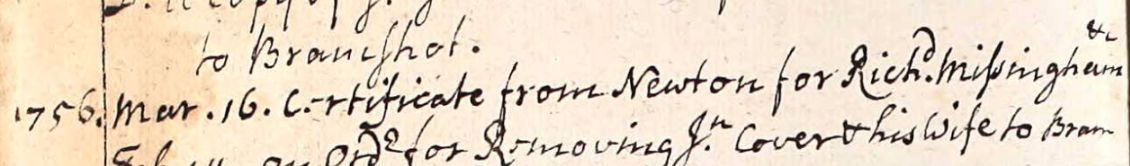 to Bramshot.
&c
1756. Mar. 16. Certificate from Newton for Rich^d. Missingham
for Removing J^n. Cover & his Wife to Bram